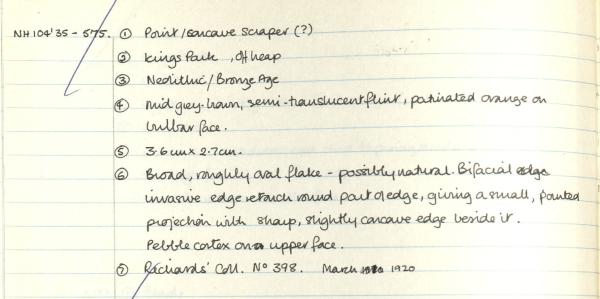 NH104'35 - 575. ① Point/concave scraper (?)
② Kings Park, Oft heap
③ Neolithic/Bronze Age
④ Mid grey-brown, semi-translucent flint, patinated orange on
bulbar face.
⑤ 3.6cm x 2.7cm.
⑥ Broad, roughly oval flake - possibly natural. Bifacial edge
invasive edge retouch round part of edge, giving a small, pointed
projection with sharp, slightly concave edge beside it.
Pebble cortex on upper face.
⑦ Richards' Coll. Nº 398. March 1920